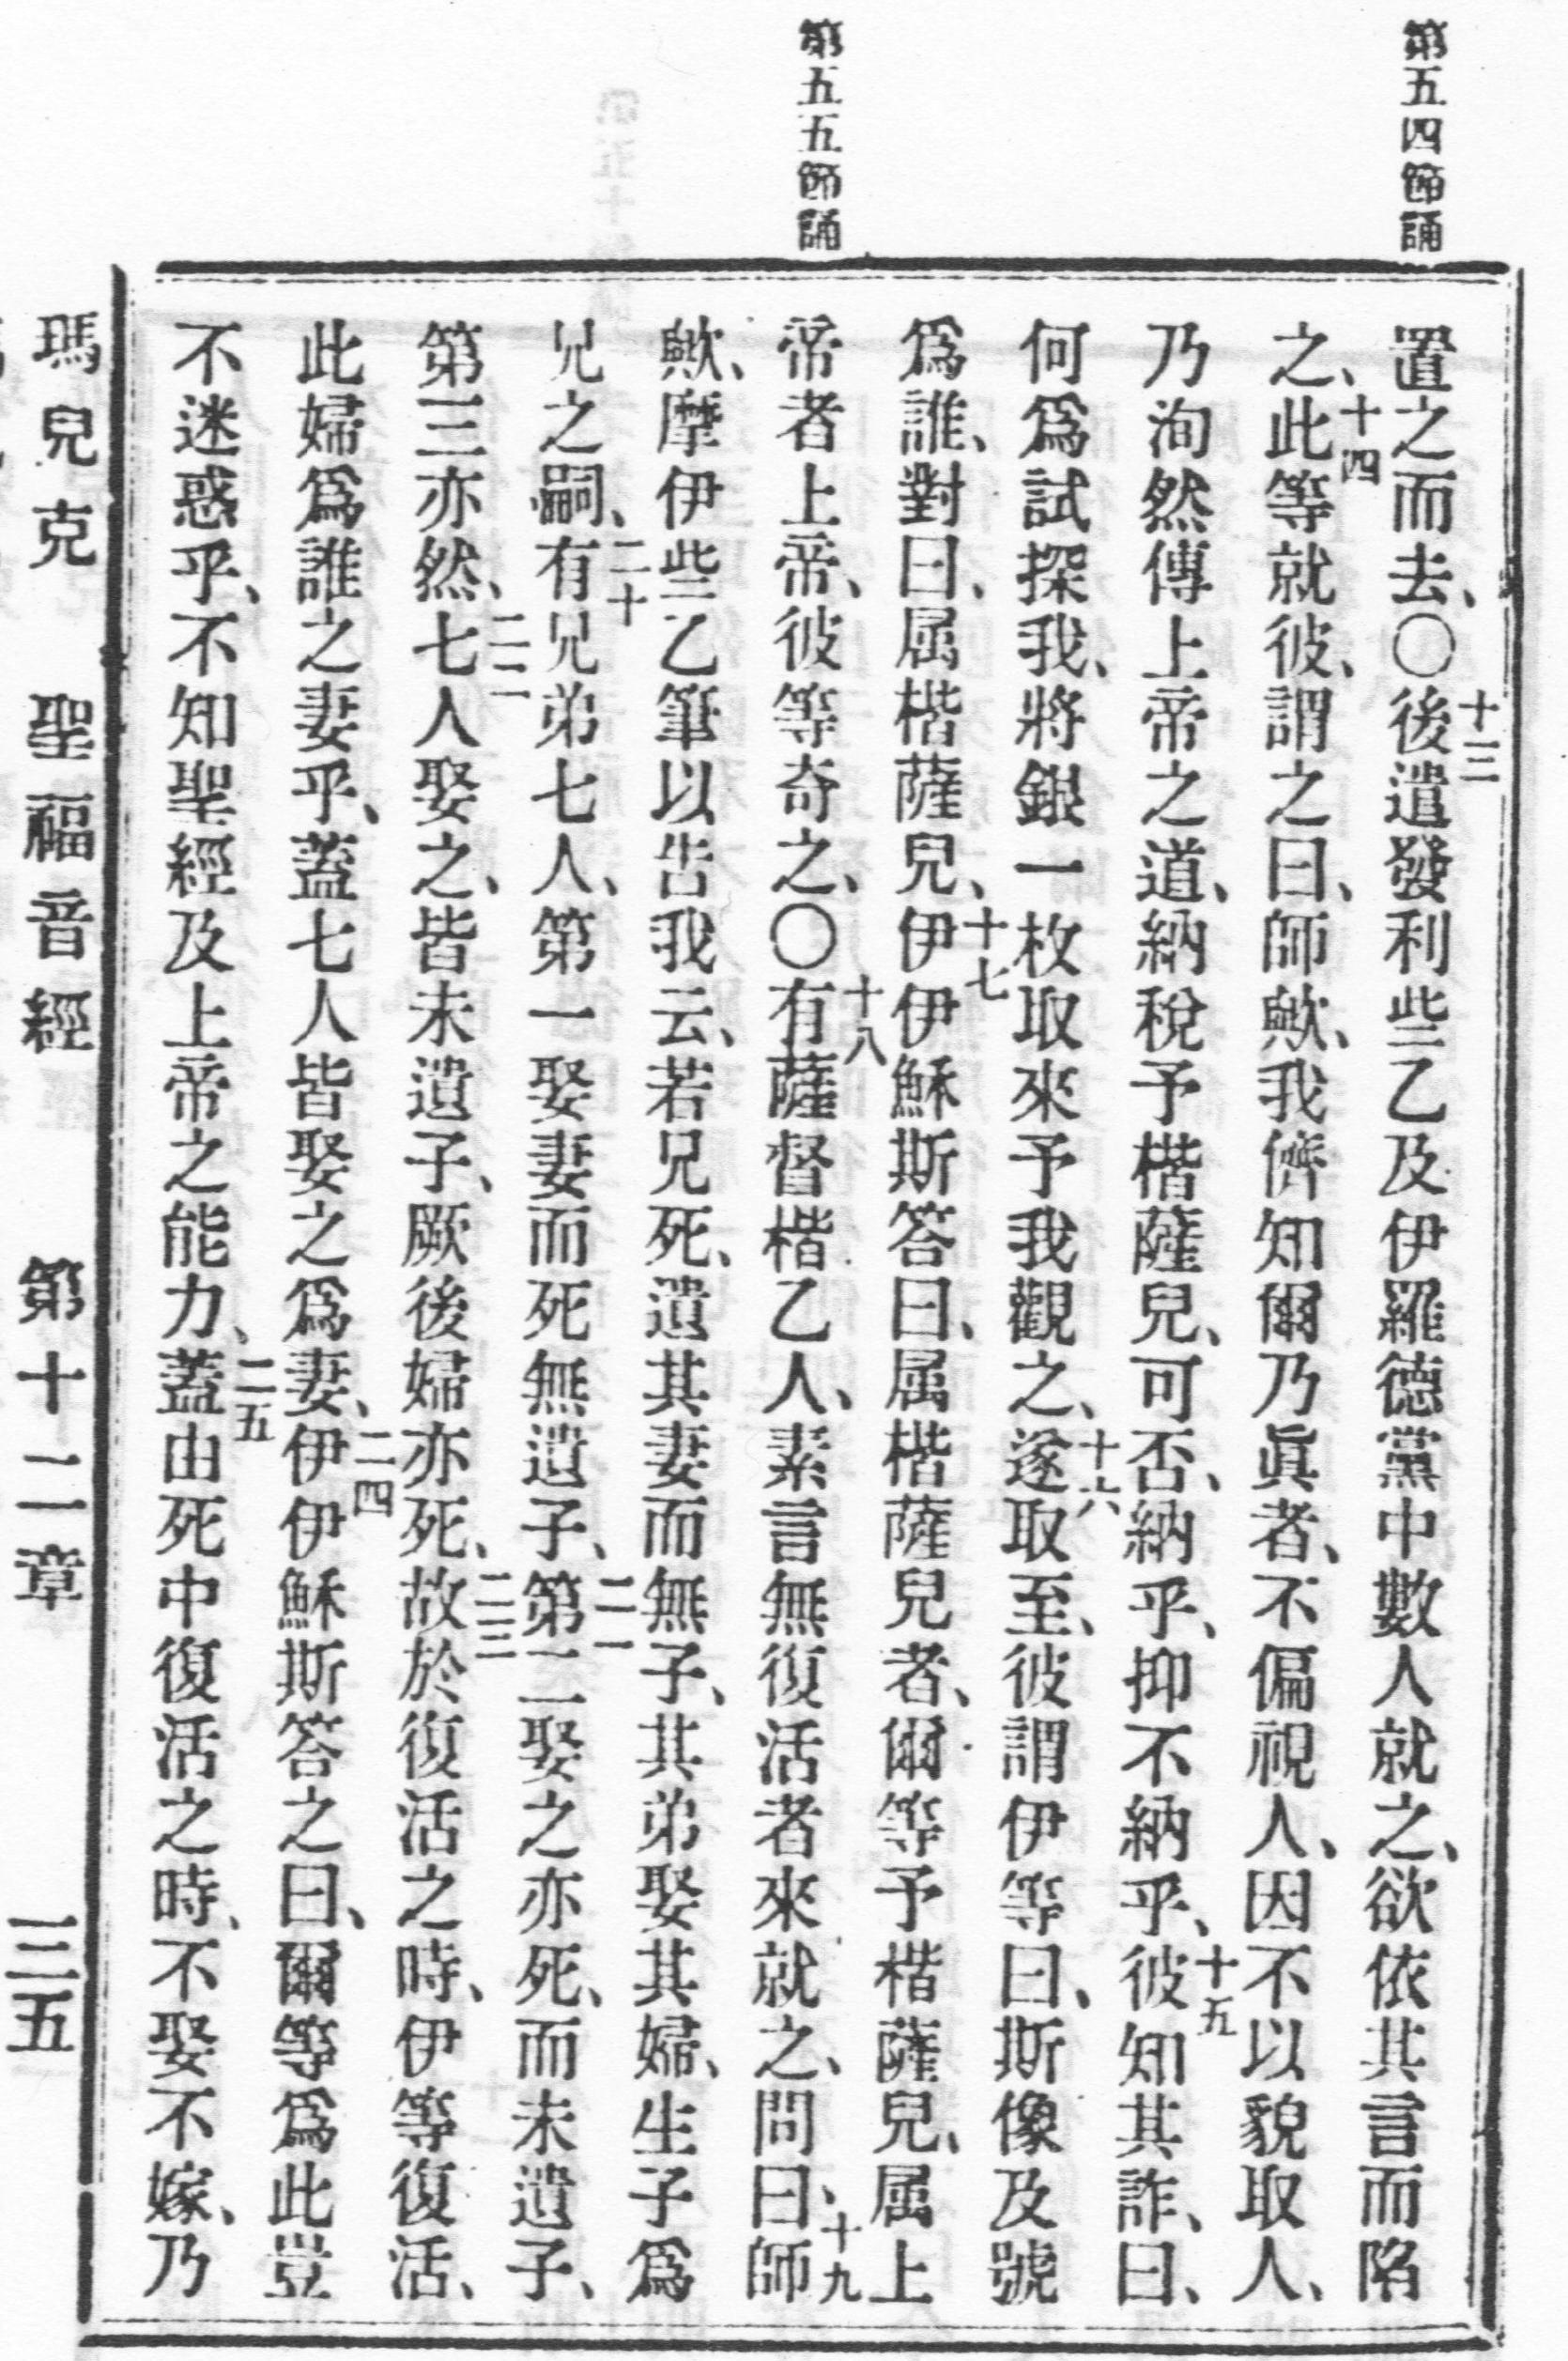 第五四節誦
第五五節誦
置之而去、〇十三後遣發利些乙及伊羅德黨中數人就之、欲依其言而陷
之、十四此等就彼、謂之曰、師歟、我儕知爾乃眞者、不偏視人、因不以貌取人、
乃洵然傳上帝之道、納稅予楷薩兒、可否、納乎、抑不納乎、十五彼知其詐、曰、
何爲試探我、將銀一枚取來予我觀之、十六遂取至、彼謂伊等曰、斯像及號
爲誰、對曰、屬楷薩兒、十七伊伊穌斯答曰、屬楷薩兒者、爾等予楷薩兒、屬上
帝者上帝、彼等奇之、〇十八有薩督楷乙人、素言無復活者來就之、問曰、十九師
歟、摩伊些乙筆以告我云、若兄死、遺其妻而無子、其弟娶其婦、生子爲
兄之嗣、二十有兄弟七人、第一娶妻而死無遺子、二一第二娶之亦死、而未遺子、
第三亦然、二二七人娶之、皆未遺子、厥後婦亦死、二三故於復活之時、伊等復活、
此婦爲誰之妻乎、蓋七人皆娶之爲妻、二四伊伊穌斯答之曰、爾等爲此豈
不迷惑乎、不知聖經及上帝之能力、二五蓋由死中復活之時、不娶不嫁、乃
瑪兒克 聖福音經 第十二章 三五